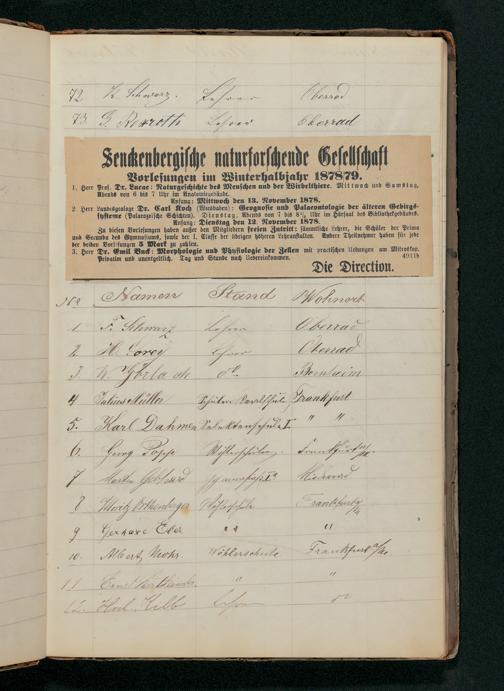 72 Schwarz. Lehrer Oberrad
73 G. Rexroth Lehrer Oberrad
Senckenbergische naturforschende Gesellschaft
Vorlesungen im Winterhalbjahr 1878/79.
1. Herr Prof. Dr. Lucae: Naturgeschichte des Menschen und der Wirbelthiere. Mittwoch und Samstag,
Abends von 6 bis 7 Uhr im Anatomiegebäude.
Anfang: Mittwoch den 13. November 1878.
2. Herr Landesgeologe Dr. Carl Koch (Wiesbaden): Geognosie und Palaeontologie der älteren Gebirgs-
systeme (Palaeozoische Schichten). Dienstag, Abends von 7 bis 8½ Uhr im Hörsaal des Bibliothekgebäudes.
Anfang: Dienstag den 12. November 1878.
Zu diesen Vorlesungen haben außer den Mitgliedern freien Zutritt: sämmtliche Lehrer, die Schüler der Prima
und Secunda des Gymnasiums, sowie der I. Classe der übrigen höheren Lehranstalten. Andere Theilnehmer haben für jede
der beiden Vorlesungen 5 Mark zu zahlen.
3. Herr Dr. Emil Buck: Morphologie und Physiologie der Zellen mit practischen Uebungen am Mikroskop.
Privatim und unentgeltlich. Tag und Stunde nach Uebereinkommen.
Die Direction.
Namen Stand Wohnort
1 F. Schwarz Lehrer Oberrad
2 H. Lehrer Oberrad
3 W. do Bornheim
4 Julius Müller Frankfurt
5. Karl Dahmen Selektenschule I. " "
6. Georg Popp Wöhlerschule Frankfurt a/M.
7
8 Moritz Frankfurt
9 Gerhard Eber " " "
10. Albert Mohr. Wöhlerschule Frankfurt a/M.
11 Ernst " "
12. Kolb Lehrer do